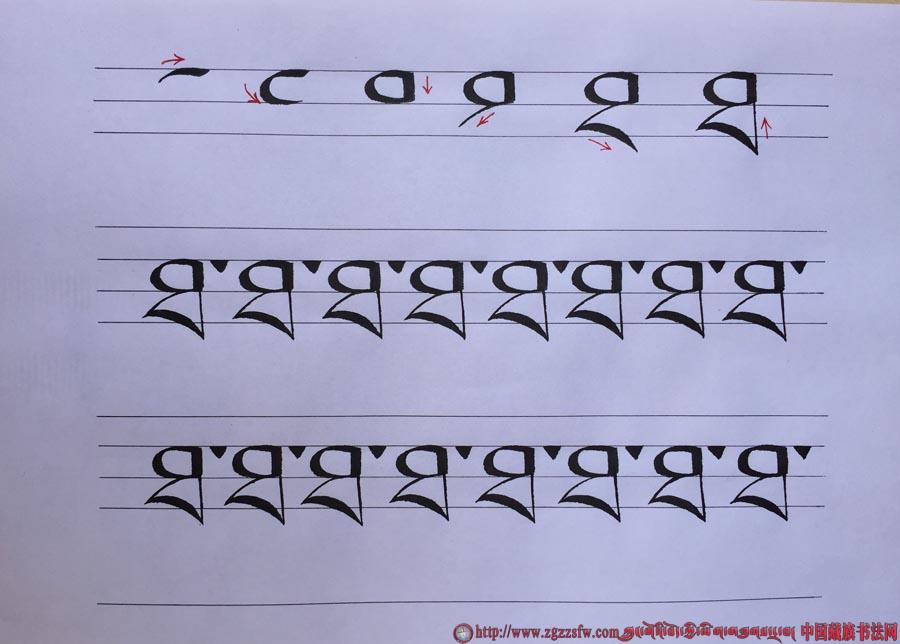 ཐ
ཐ་ཐ་ཐ་ཐ་ཐ་ཐ་ཐ་ཐ་
ཐ་ཐ་ཐ་ཐ་ཐ་ཐ་ཐ་ཐ་
http://www.zgzzsfw.com 中国藏族书法网